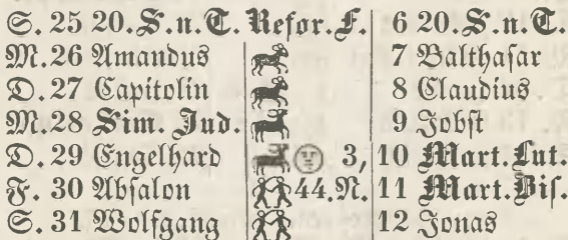 S. 25 20. S. n. T. Refor. F. 6 20. S. n. T.
M. 26 Amandus 7 Balthaſar
D. 27 Capitolin 8 Claudius
M. 28 Sim. Jud. 9 Jobſt
D. 29 Engelhard 3, 10 Mart. Lut.
F. 30 Abſalon 44. N. 11 Mart. Biſ.
S. 31 Wolfgang 12 Jonas